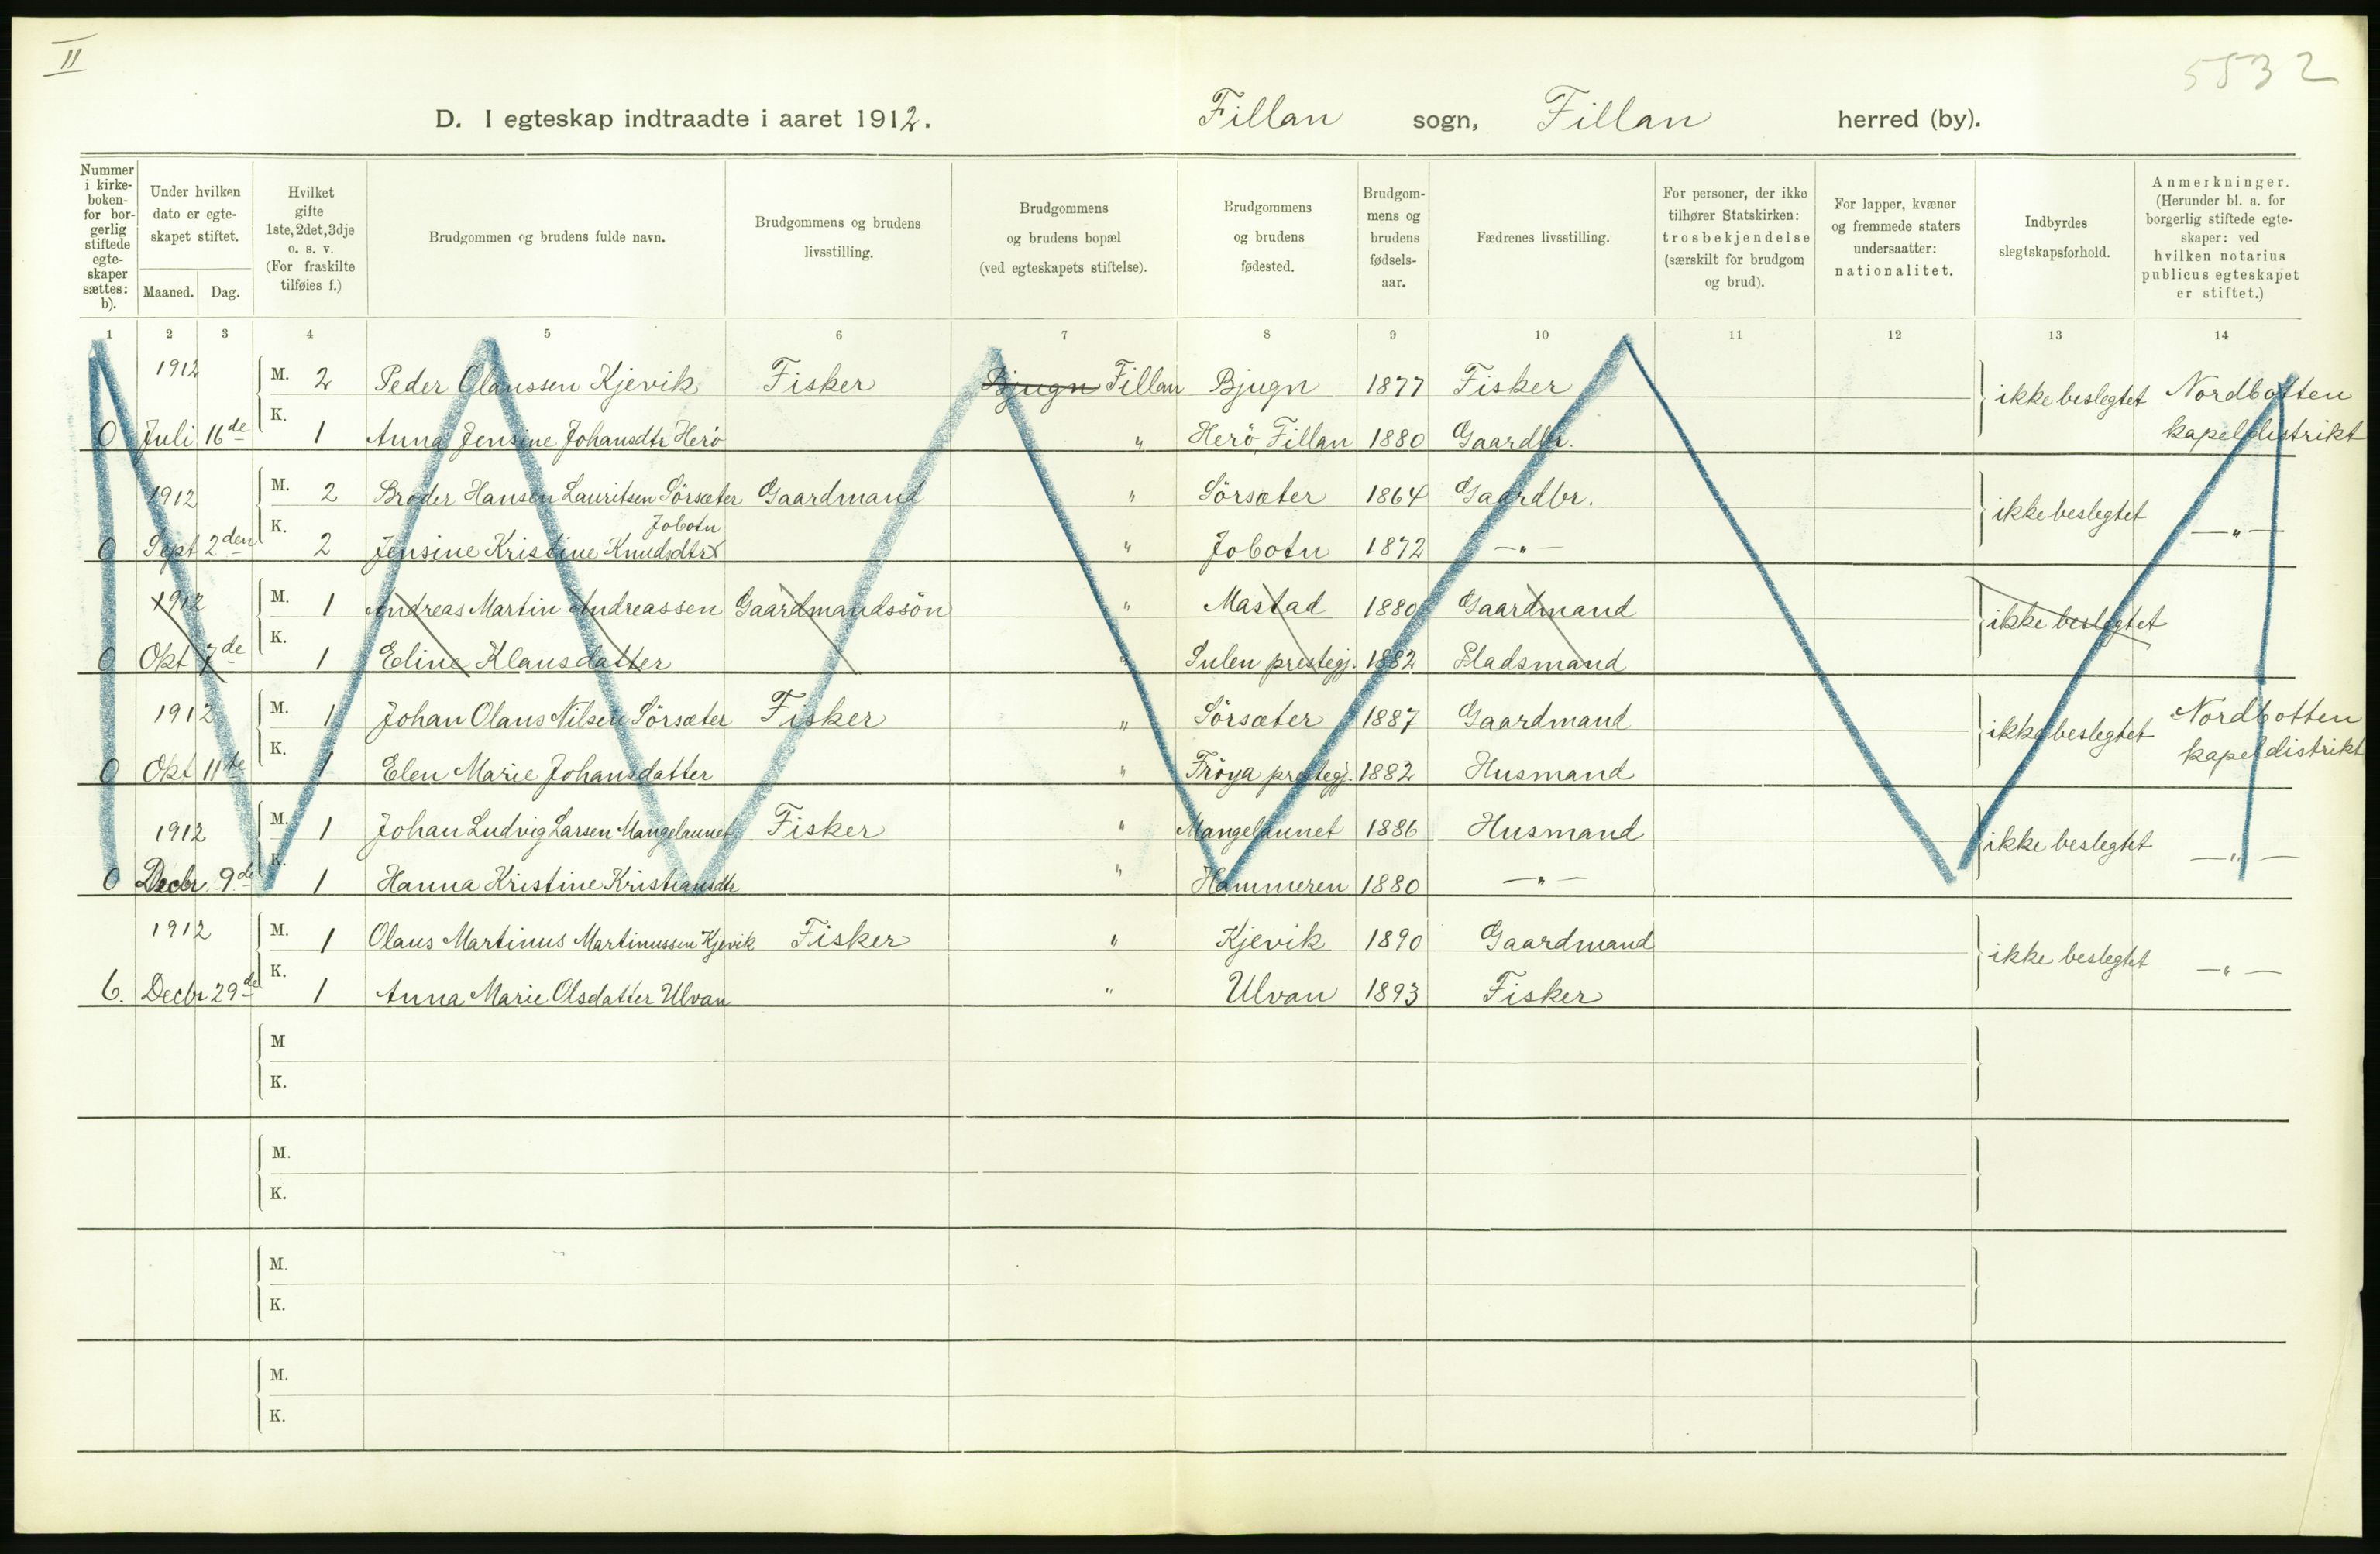 II
5532
D. I egteskap indtraadte i aaret 1912.
Fillan sogn, Fillan herred (by).
Nummer i kirke-boken- for bor-gerlig stiftede egte-skaper sættes: b).
Under hvilken dato er egte-skapet stiftet.
Maaned. Dag.
Hvilket gifte 1ste, 2det, 3dje o. s. v. (For fraskilte tilføies f.)
Brudgommen og brudens fulde navn.
Brudgommens og brudens livsstilling.
Brudgommens og brudens bopæl (ved egteskapets stiftelse).
Brudgommens og brudens fødested.
Brudgom-mens og brudens fødsels-aar.
Fædrenes livsstilling.
For personer, der ikke tilhører Statskirken: trosbekjendelse (særskilt for brudgom og brud).
For lapper, kvæner og fremmede staters undersaatter: nationalitet.
Indbyrdes slegtskapsforhold.
Anmerkninger. (Herunder bl. a. for borgerlig stiftede egte-skaper: ved hvilken notarius publicus egteskapet er stiftet.)
1 2 3 4 5 6 7 8 9 10 11 12 13 14
1912 M. 2 Peder Olaussen Kjevik Fisker Bjugn Fillan Bjugn 1877 Fisker ikke beslegtet Nordbotten
0 Juli 16de K. 1 Anna Jensine Johansdtr Herö " Herö, Fillan 1880 Gaardbr. kapeldistrikt
1912 M. 2 Broder Hansen Lauritsen Sörsæter Gaardmand " Sörsæter 1864 Gaardbr. ikke beslegtet —"—
Jobotn
0 Sept 2den K. 2 Jensine Kristine Knudsdtr " Jobotn 1872 —"—
1912 M. 1 Andreas Martin Andreassen Gaardmandssön " Mastad 1880 Gaardmand ikke beslegtet
0 Okt 7de K. 1 Eline Klausdatter " Sulen prestegj. 1882 Pladsmand
1912 M. 1 Johan Olaus Nilsen Sörsæter Fisker " Sörsæter 1887 Gaardmand ikke beslegtet Nordbotten
0 Okt 11te K. 1 Elen Marie Johansdatter " Fröya prestegj. 1882 Husmand kapeldistrikt
1912 M. 1 Johan Ludvig Larsen Mangelaunet Fisker " Mangelaunet 1886 Husmand ikke beslegtet —"—
0 Decbr 9de K. 1 Hanna Kristine Kristiansdtr " Hammeren 1880 —"—
1912 M. 1 Olaus Martinus Martinussen Kjevik Fisker " Kjevik 1890 Gaardmand ikke beslegtet —"—
6. Decbr 29de K. 1 Anna Marie Olsdatter Ulvan " Ulvan 1893 Fisker
M
K.
M.
K.
M.
K.
M.
K.